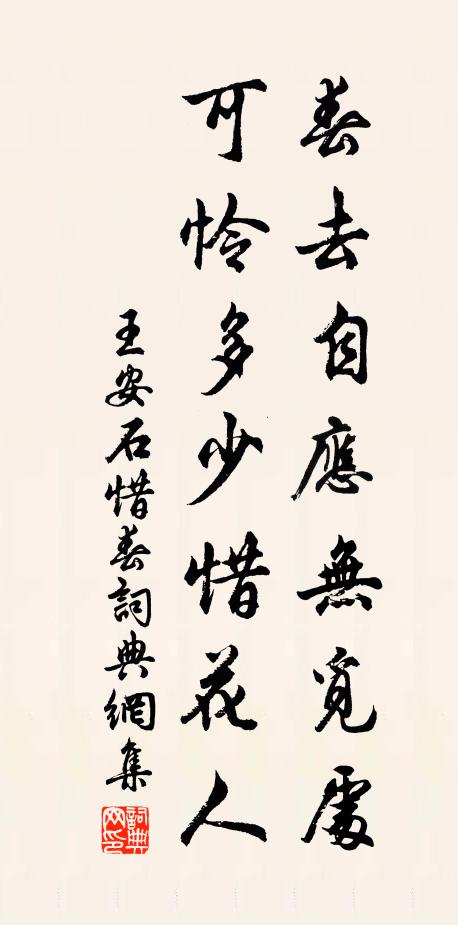 春去自應無覓處
可憐多少惜花人
王安石惜春詞典網集
詞典網印